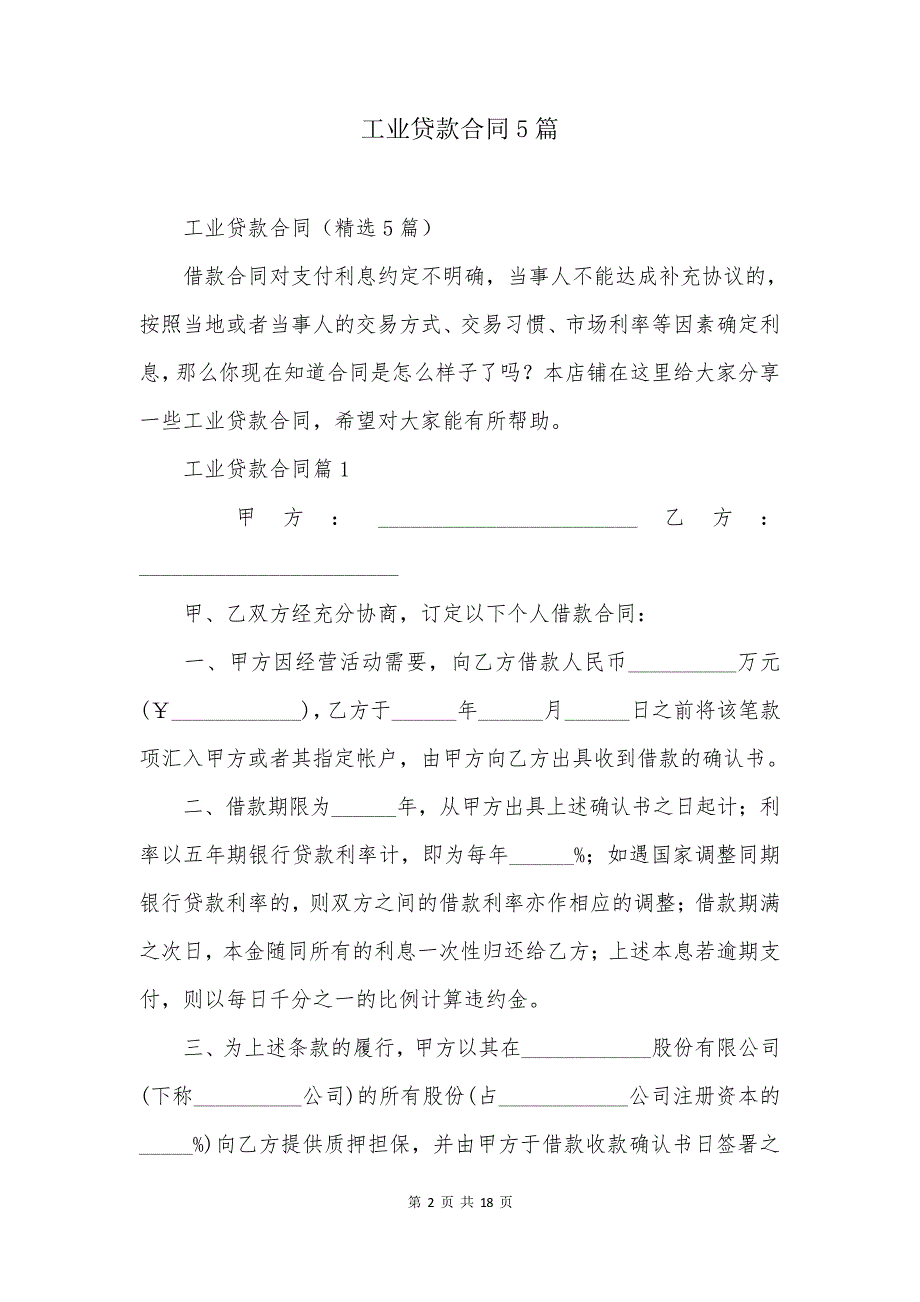 工业贷款合同 5 篇
工业贷款合同（精选 5 篇）
借款合同对支付利息约定不明确，当事人不能达成补充协议的，
按照当地或者当事人的交易方式、交易习惯、市场利率等因素确定利
息，那么你现在知道合同是怎么样子了吗？本店铺在这里给大家分享
一些工业贷款合同，希望对大家能有所帮助。
工业贷款合同篇 1
甲 方 ： ________________________ 乙 方 ：
________________________
甲、乙双方经充分协商，订定以下个人借款合同：
一、甲方因经营活动需要，向乙方借款人民币__________万元
(￥____________)，乙方于______年______月______日之前将该笔款
项汇入甲方或者其指定帐户，由甲方向乙方出具收到借款的确认书。
二、借款期限为______年，从甲方出具上述确认书之日起计；利
率以五年期银行贷款利率计，即为每年______%；如遇国家调整同期
银行贷款利率的，则双方之间的借款利率亦作相应的调整；借款期满
之次日，本金随同所有的利息一次性归还给乙方；上述本息若逾期支
付，则以每日千分之一的比例计算违约金。
三、为上述条款的履行，甲方以其在____________股份有限公司
(下称__________公司)的所有股份(占____________公司注册资本的
_____%)向乙方提供质押担保，并由甲方于借款收款确认书日签署之
第 2 页 共 18 页